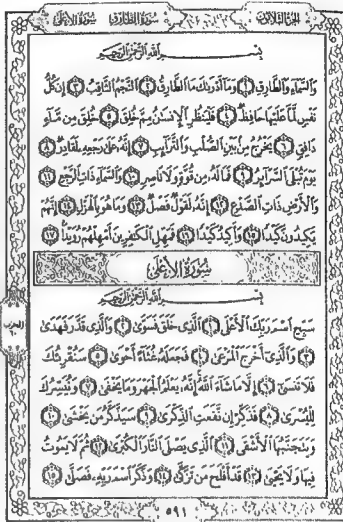 الجزء الثلاثون سورة الطارق سورة الأعلى
بسم الله الرحمن الرحيم
والسماء والطارق ١ وما أدراك ما الطارق ٢ النجم الثاقب ٣ إن كل
نفس لما عليها حافظ ٤ فلينظر الإنسان مم خلق ٥ خلق من ماء
دافق ٦ يخرج من بين الصلب والترائب ٧ إنه على رجعه لقادر ٨
يوم تبلى السرائر ٩ فما له من قوة ولا ناصر ١٠ والسماء ذات الرجع ١١
والأرض ذات الصدع ١٢ إنه لقول فصل ١٣ وما هو بالهزل ١٤ إنهم
يكيدون كيدا ١٥ وأكيد كيدا ١٦ فمهل الكافرين أمهلهم رويدا ١٧
سورة الأعلى
بسم الله الرحمن الرحيم
سبح اسم ربك الأعلى ١ الذي خلق فسوى ٢ والذي قدر فهدى
٣ والذي أخرج المرعى ٤ فجعله غثاء أحوى ٥ سنقرئك
فلا تنسى ٦ إلا ما شاء الله إنه يعلم الجهر وما يخفى ٧ ونيسرك
لليسرى ٨ فذكر إن نفعت الذكرى ٩ سيذكر من يخشى ١٠
ويتجنبها الأشقى ١١ الذي يصلى النار الكبرى ١٢ ثم لا يموت
فيها ولا يحيى ١٣ قد أفلح من تزكى ١٤ وذكر اسم ربه فصلى ١٥
٥٩١